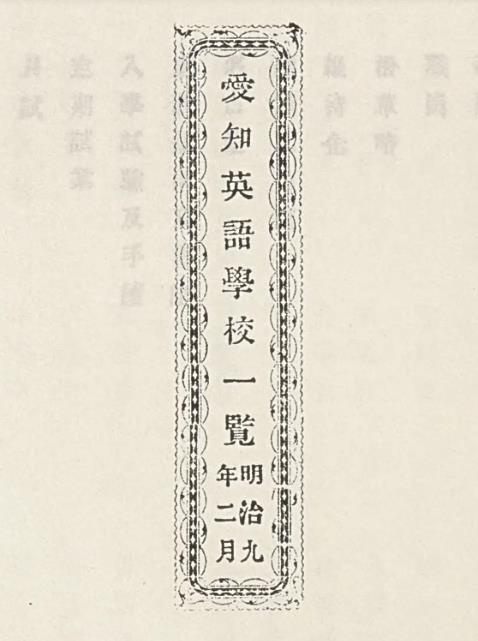 愛知英語學校一覽
明治九
年二月